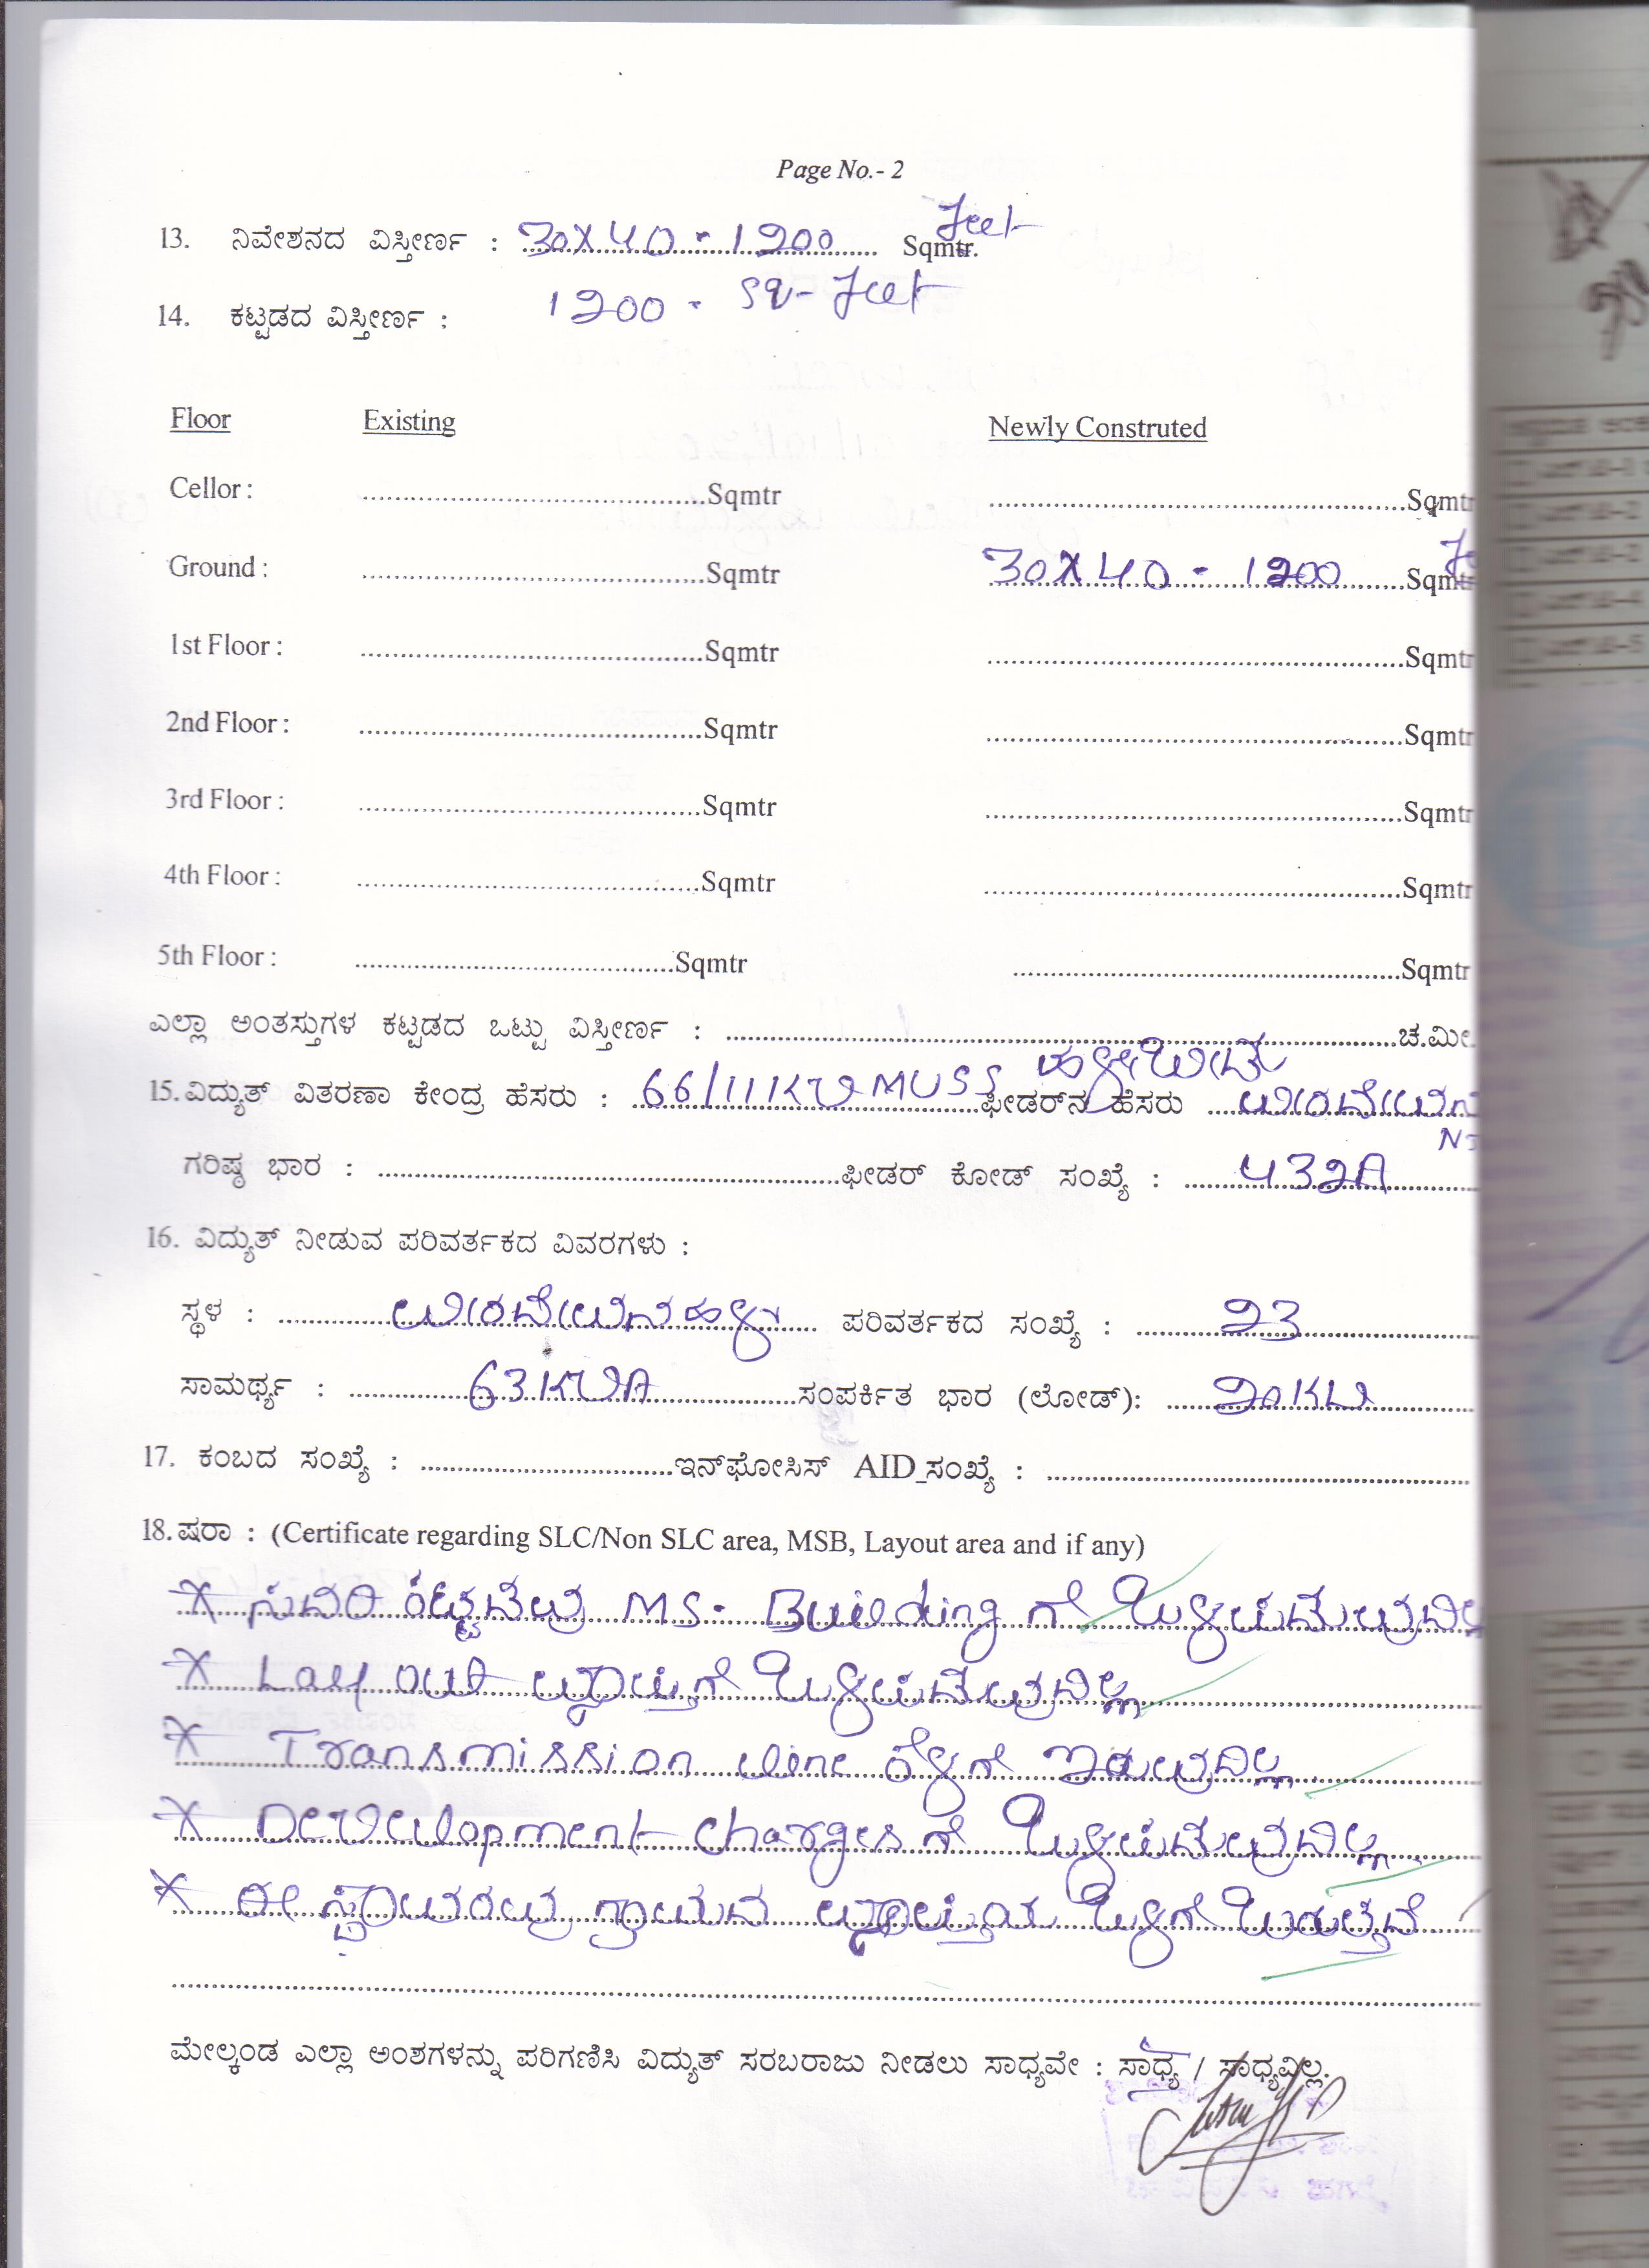 Page No.- 2
13. ನಿವೇಶನದ ವಿಸ್ತೀರ್ಣ : 30X40 - 1200 Sqmtr. Feet
14. ಕಟ್ಟಡದ ವಿಸ್ತೀರ್ಣ : 1200 - Sq- Feet
Floor Existing Newly Construted
Cellor : ........Sqmtr ........Sqmtr
Ground : ........Sqmtr 30X40 - 1200 Sqmtr
1st Floor : ........Sqmtr ........Sqmtr
2nd Floor : ........Sqmtr ........Sqmtr
3rd Floor : ........Sqmtr ........Sqmtr
4th Floor : ........Sqmtr ........Sqmtr
5th Floor : ........Sqmtr ........Sqmtr
ಎಲ್ಲಾ ಅಂತಸ್ತುಗಳ ಕಟ್ಟಡದ ಒಟ್ಟು ವಿಸ್ತೀರ್ಣ : ........ಚ.ಮೀ.
15. ವಿದ್ಯುತ್ ವಿತರಣಾ ಕೇಂದ್ರ ಹೆಸರು : 66/11KV MUSS ಹಳೇಬೀಡು ಫೀಡರ್‌ನ ಹೆಸರು
ಗರಿಷ್ಠ ಭಾರ : ........ಫೀಡರ್ ಕೋಡ್ ಸಂಖ್ಯೆ : 432A
16. ವಿದ್ಯುತ್ ನೀಡುವ ಪರಿವರ್ತಕದ ವಿವರಗಳು :
ಸ್ಥಳ : ವೀರದೇವನಹಳ್ಳಿ ಪರಿವರ್ತಕದ ಸಂಖ್ಯೆ : 23
ಸಾಮರ್ಥ್ಯ : 63KVA ಸಂಪರ್ಕಿತ ಭಾರ (ಲೋಡ್): 20KW
17. ಕಂಬದ ಸಂಖ್ಯೆ : ........ಇನ್‌ಫೋಸಿಸ್ AID_ಸಂಖ್ಯೆ : ........
18. ಷರಾ : (Certificate regarding SLC/Non SLC area, MSB, Layout area and if any)
* ಸದರಿ ಕಟ್ಟಡವು MS- Building ಗೆ ಒಳಪಡುವುದಿಲ್ಲ
* Layout ವ್ಯಾಪ್ತಿಗೆ ಒಳಪಡುವುದಿಲ್ಲ
* Transmission line ಕೆಳಗೆ ಇರುವುದಿಲ್ಲ
* Development Charges ಗೆ ಒಳಪಡುವುದಿಲ್ಲ
* ಈ ಸ್ಥಾವರವು ಗ್ರಾಮದ ವ್ಯಾಪ್ತಿಯ ಒಳಗೆ ಬರುತ್ತದೆ
ಮೇಲ್ಕಂಡ ಎಲ್ಲಾ ಅಂಶಗಳನ್ನು ಪರಿಗಣಿಸಿ ವಿದ್ಯುತ್ ಸರಬರಾಜು ನೀಡಲು ಸಾಧ್ಯವೇ : ಸಾಧ್ಯ / ಸಾಧ್ಯವಿಲ್ಲ.